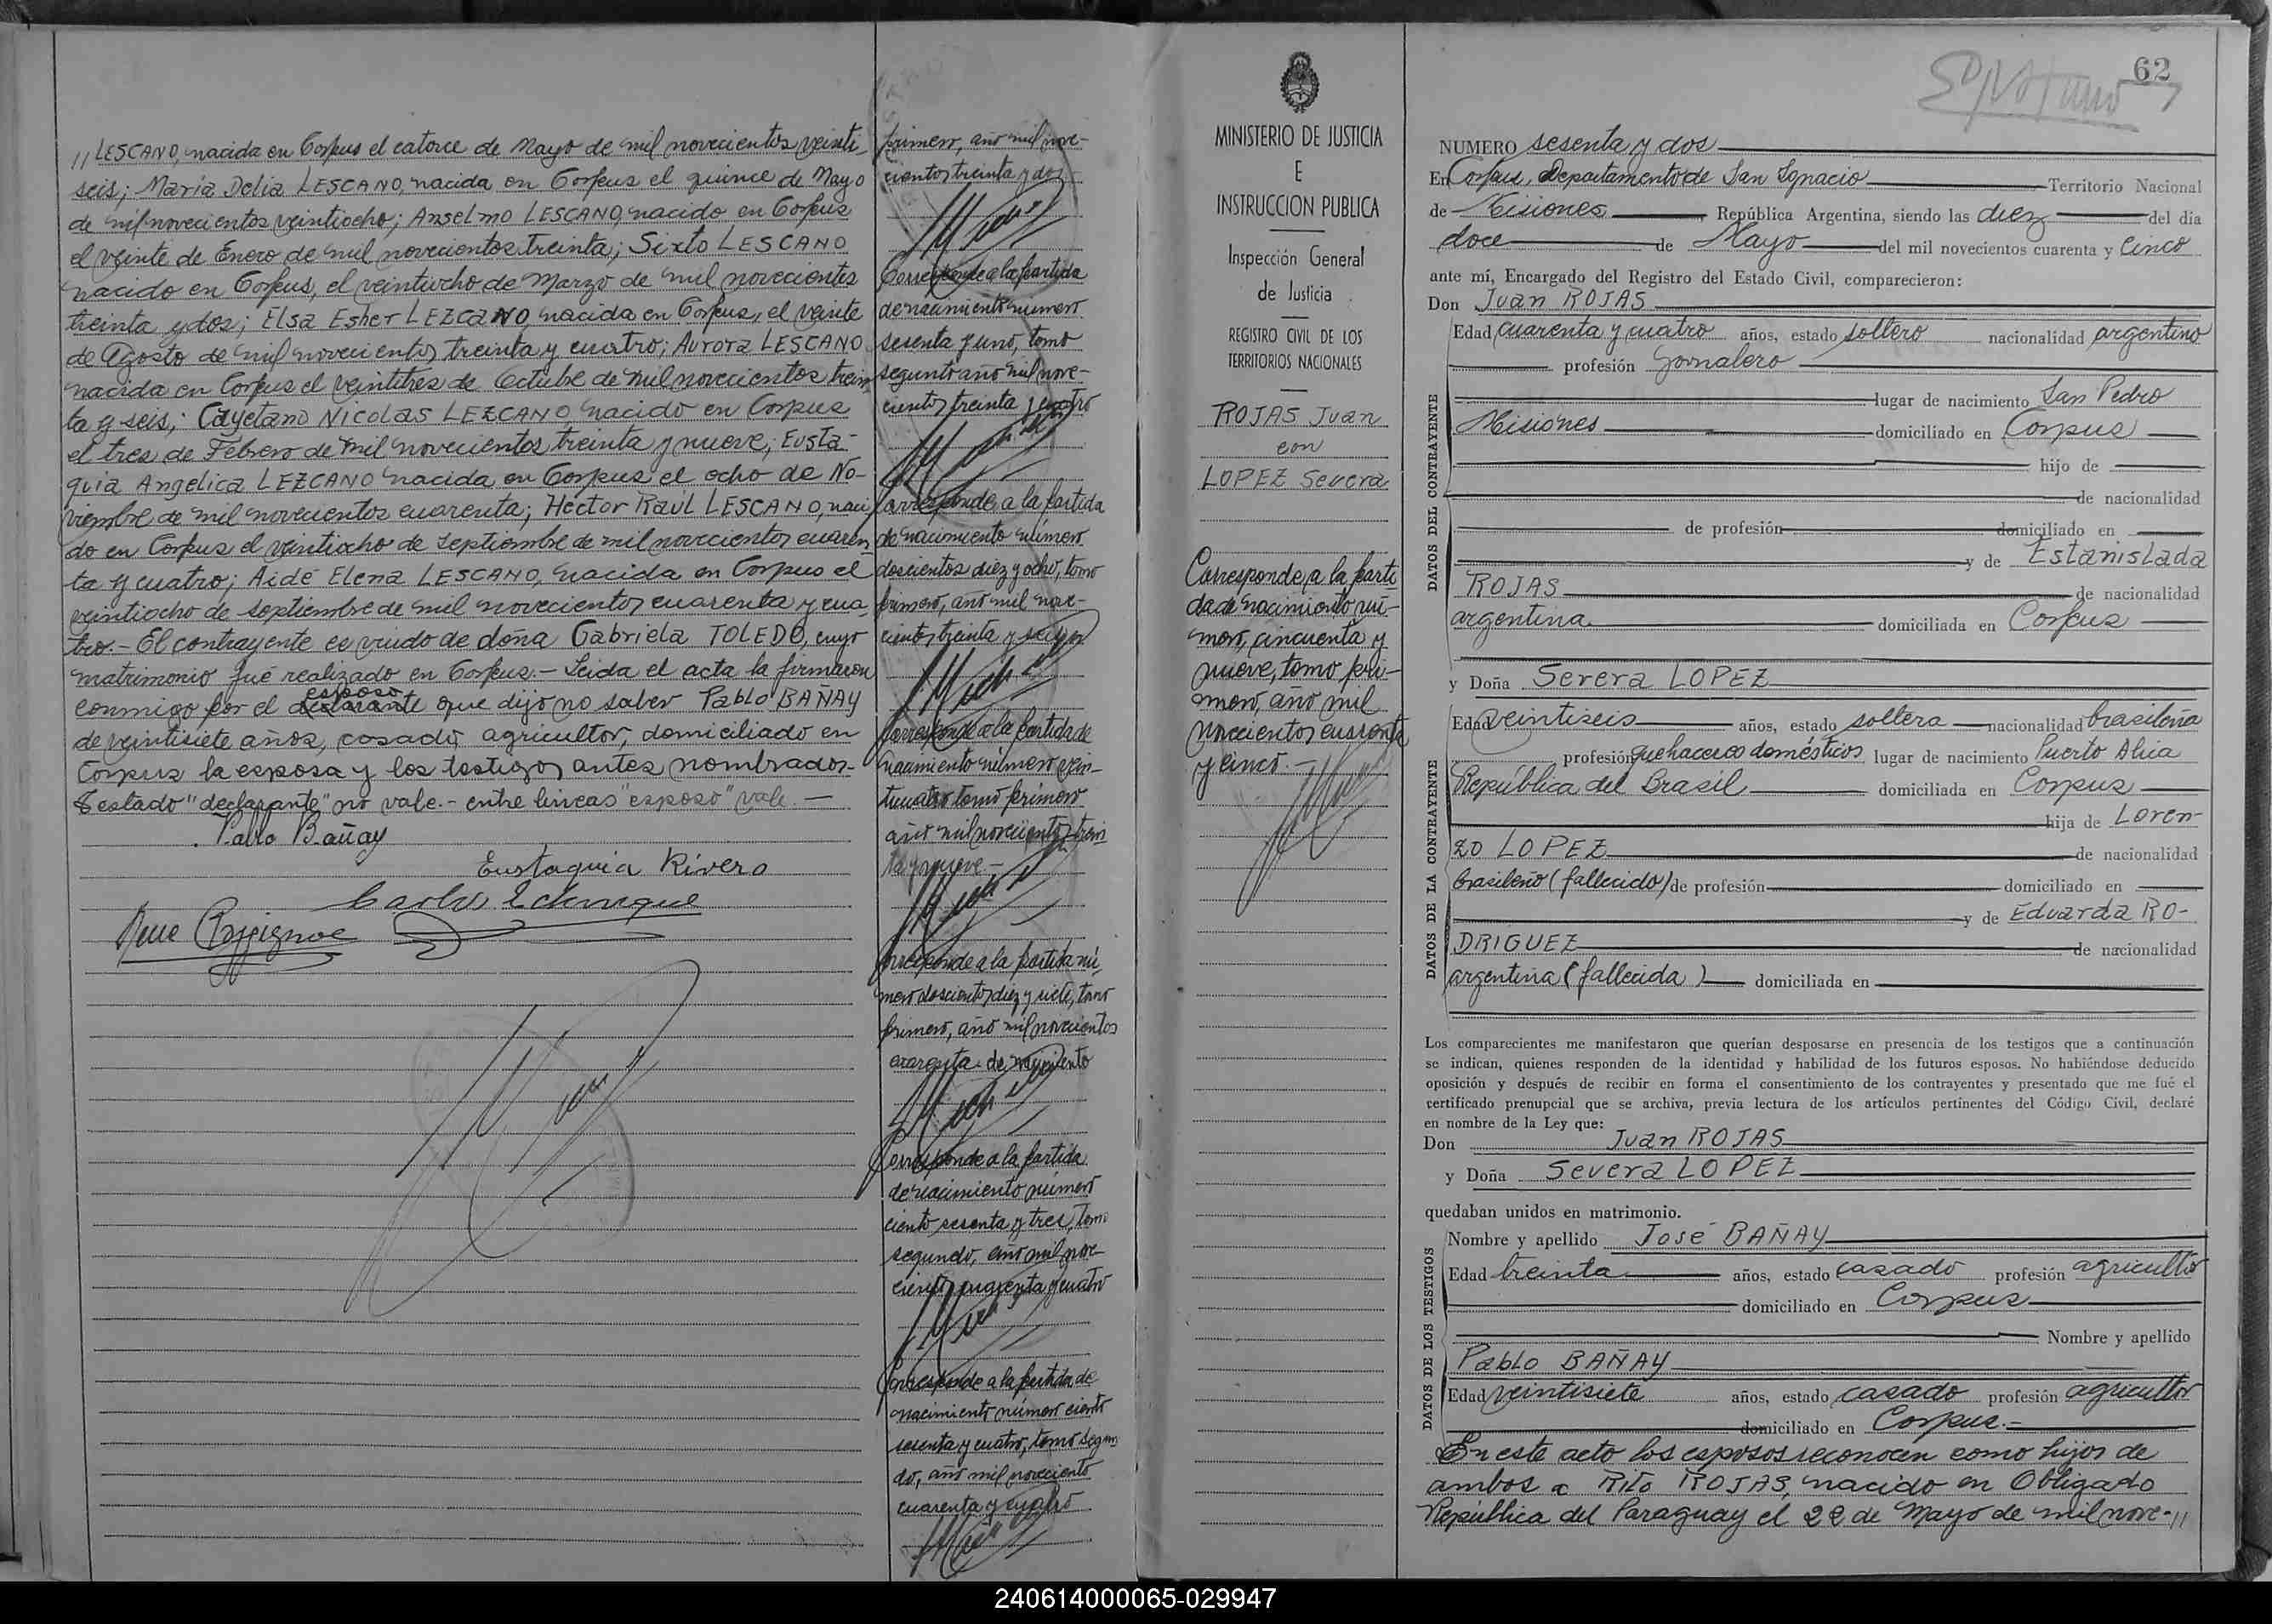 // LESCANO, nacida en Corpus el catorce de Mayo de mil novecientos veinti-
seis; María Delia LESCANO, nacida en Corpus el quince de Mayo
de mil novecientos veintiocho; Anselmo LESCANO, nacido en Corpus
el veinte de Enero de mil novecientos treinta; Sixto LESCANO
nacido en Corpus, el veintiocho de Marzo de mil novecientos
treinta y dos; Elsa Esher LEZCANO, nacida en Corpus, el veinte
de Agosto de mil novecientos treinta y cuatro; Aurora LESCANO
nacida en Corpus el veintitres de Octubre de mil novecientos trein
ta y seis; Cayetano Nicolas LEZCANO nacido en Corpus
el tres de Febrero de mil novecientos treinta y nueve; Eusta-
quia Angelica LEZCANO nacida en Corpus el ocho de No-
viembre de mil novecientos cuarenta; Héctor Raúl LESCANO, naci
do en Corpus el veintiocho de septiembre de mil novecientos cuaren
ta y cuatro; Aidé Elena LESCANO, nacida en Corpus el
veintiocho de septiembre de mil novecientos cuarenta y cua
tro.- El contrayente es viudo de doña Gabriela TOLEDO, cuyo
matrimonio fué realizado en Corpus.- Leida el acta la firmaron
esposo
conmigo por el declarante que dijo no saber Pablo BAÑAY
de veintisiete años, casado, agricultor, domiciliado en
Corpus la esposa y los testigos antes nombrados.-
Testado "declarante" no vale.- entre lineas "esposo" vale.-
Pablo Bañay
Eustaquia Rivero
primero, año mil nove-
cientos treinta y dos
Corresponde a la partida
de nacimiento numero
sesenta y uno, tomo
segundo año mil nove-
cientos treinta y cuatro
Corresponde a la partida
de nacimiento número
doscientos diez y ocho, tomo
primero, año mil nove-
cientos treinta y seis
Corresponde a la partida de
nacimiento número vein-
ticuatro tomo primero
año mil novecientos trein
ta y nueve.-
Corresponde a la partida nú-
mero doscientos diez y siete, tomo
primero, año mil novecientos
cuarenta de nacimiento
Corresponde a la partida
de nacimiento número
ciento sesenta y tres, tomo
segundo, año mil nove-
cientos cuarenta y cuatro
Corresponde a la partida de
nacimiento número ciento
sesenta y cuatro, tomo segun
do, año mil novecientos
cuarenta y cuatro
MINISTERIO DE JUSTICIA
E
INSTRUCCION PUBLICA
Inspección General
de Justicia
REGISTRO CIVIL DE LOS
TERRITORIOS NACIONALES
ROJAS Juan
con
LOPEZ Severa
Corresponde a la parti
da de nacimiento nú-
mero, cincuenta y
nueve, tomo pri-
mero, año mil
novecientos cuarenta
y cinco.-
62
NUMERO sesenta y dos
En Corpus, Departamento de San Ignacio Territorio Nacional
de Misiones República Argentina, siendo las diez del día
doce de Mayo del mil novecientos cuarenta y cinco
ante mí, Encargado del Registro del Estado Civil, comparecieron:
Don Juan ROJAS
DATOS DEL CONTRAYENTE
Edad cuarenta y cuatro años, estado soltero nacionalidad argentino
profesión Jornalero
lugar de nacimiento San Pedro
Misiones domiciliado en Corpus
hijo de
de nacionalidad
de profesión domiciliado en
y de Estanislada
ROJAS de nacionalidad
argentina domiciliada en Corpus
y Doña Severa LOPEZ
DATOS DE LA CONTRAYENTE
Edad veintiseis años, estado soltera nacionalidad brasileña
profesión quehaceres domésticos lugar de nacimiento Puerto Alica
República del Brasil domiciliada en Corpus
hija de Loren-
zo LOPEZ de nacionalidad
brasileño (fallecido) de profesión domiciliado en
y de Eduarda RO-
DRIGUEZ de nacionalidad
argentina (fallecida) domiciliada en
Los comparecientes me manifestaron que querían desposarse en presencia de los testigos que a continuación
se indican, quienes responden de la identidad y habilidad de los futuros esposos. No habiéndose deducido
oposición y después de recibir en forma el consentimiento de los contrayentes y presentado que me fué el
certificado prenupcial que se archiva, previa lectura de los artículos pertinentes del Código Civil, declaré
en nombre de la Ley que:
Don Juan ROJAS
y Doña Severa LOPEZ
quedaban unidos en matrimonio.
DATOS DE LOS TESTIGOS
Nombre y apellido José BAÑAY
Edad treinta años, estado casado profesión agricultor
domiciliado en Corpus
Nombre y apellido
Pablo BAÑAY
Edad veintisiete años, estado casado profesión agricultor
domiciliado en Corpus.-
En este acto los esposos reconocen como hijos de
ambos a Rito ROJAS, nacido en Obligado
República del Paraguay el 22 de Mayo de mil nove-//
240614000065-029947